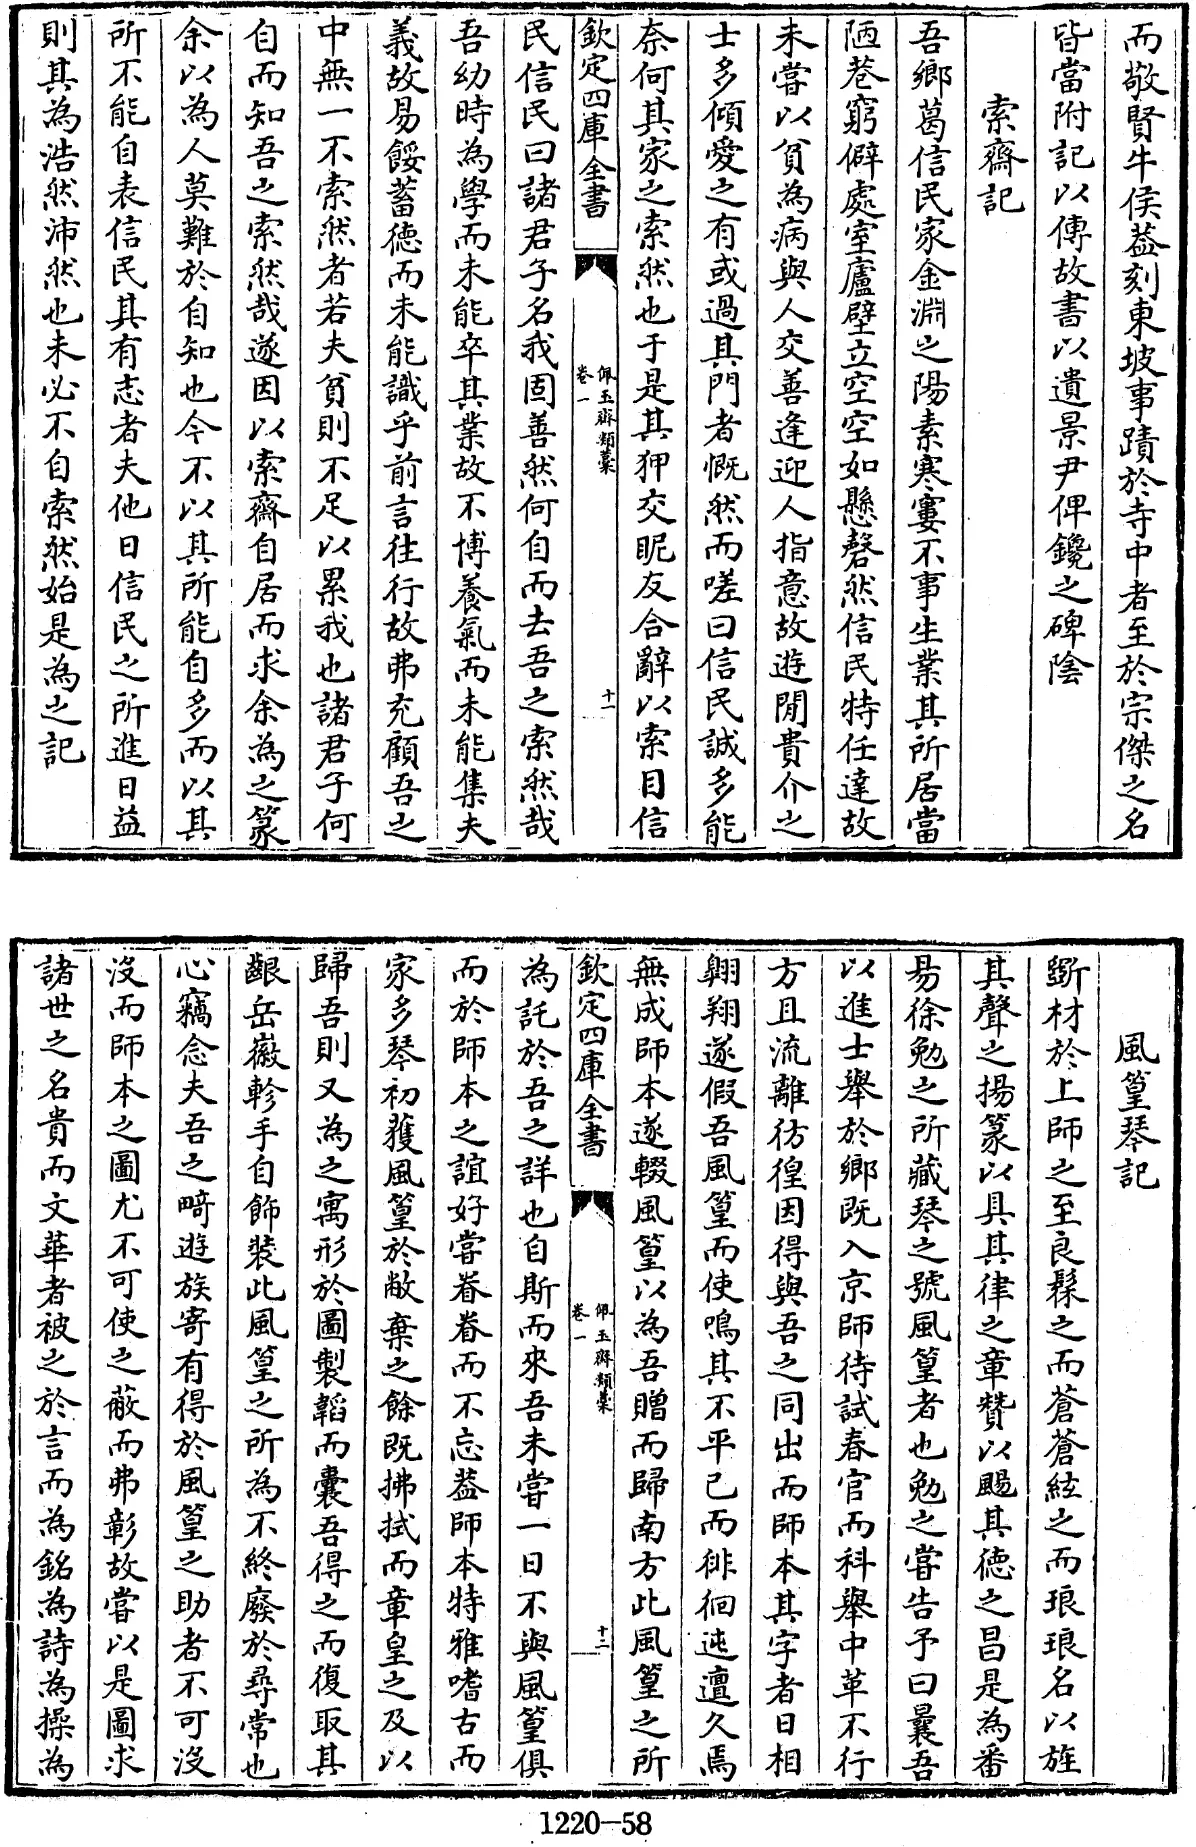 而敬賢牛侯葢刻東坡事蹟於寺中者至於宗傑之名
皆當附記以傳故書以遺景尹俾鑱之碑陰
索齋記
吾鄉葛信民家金淵之陽素寒窶不事生業其所居當
陋巷窮僻處室廬壁立空空如懸磬然信民特任達故
未嘗以貧為病與人交善逢迎人指意故遊閒貴介之
士多傾愛之有或過其門者慨然而嗟曰信民誠多能
奈何其家之索然也于是其狎交昵友合辭以索目信
欽定四庫全書
佩玉齋類藁
卷一
十一
民信民曰諸君子名我固善然何自而去吾之索然哉
吾幼時為學而未能卒其業故不博養氣而未能集夫
義故易餒蓄德而未能識乎前言往行故弗充顧吾之
中無一不索然者若夫貧則不足以累我也諸君子何
自而知吾之索然哉遂因以索齋自居而求余為之篆
余以為人莫難於自知也今不以其所能自多而以其
所不能自表信民其有志者夫他日信民之所進日益
則其為浩然沛然也未必不自索然始是為之記
風篁琴記
斲材於上師之至良髹之而蒼蒼絃之而琅琅名以旌
其聲之揚篆以具其律之章贊以賜其德之昌是為番
昜徐勉之所藏琴之號風篁者也勉之嘗告予曰曩吾
以進士舉於鄉既入京師待試春官而科舉中革不行
方且流離彷徨因得與吾之同出而師本其字者日相
翺翔遂假吾風篁而使鳴其不平已而徘徊迍邅久焉
無成師本遂輟風篁以為吾贈而歸南方此風篁之所
欽定四庫全書
佩玉齋類藁
卷一
十二
為託於吾之詳也自斯而來吾未嘗一日不與風篁俱
而於師本之誼好嘗眷眷而不忘葢師本特雅嗜古而
家多琴初獲風篁於敝棄之餘既拂拭而章皇之及以
歸吾則又為之寓形於圖製韜而囊吾得之而復取其
齦岳徽軫手自飾裝此風篁之所為不終廢於尋常也
心竊念夫吾之畸遊族寄有得於風篁之助者不可沒
沒而師本之圖尤不可使之蔽而弗彰故嘗以是圖求
諸世之名貴而文華者被之於言而為銘為詩為操為
1220—58